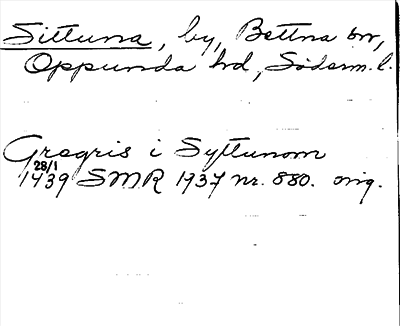 Sittuna, by, Bettna sn,
Oppunda hd, Söderm. l.
Gregris i Syttunom
28/1
1439 SMR 1937 nr. 880. orig.